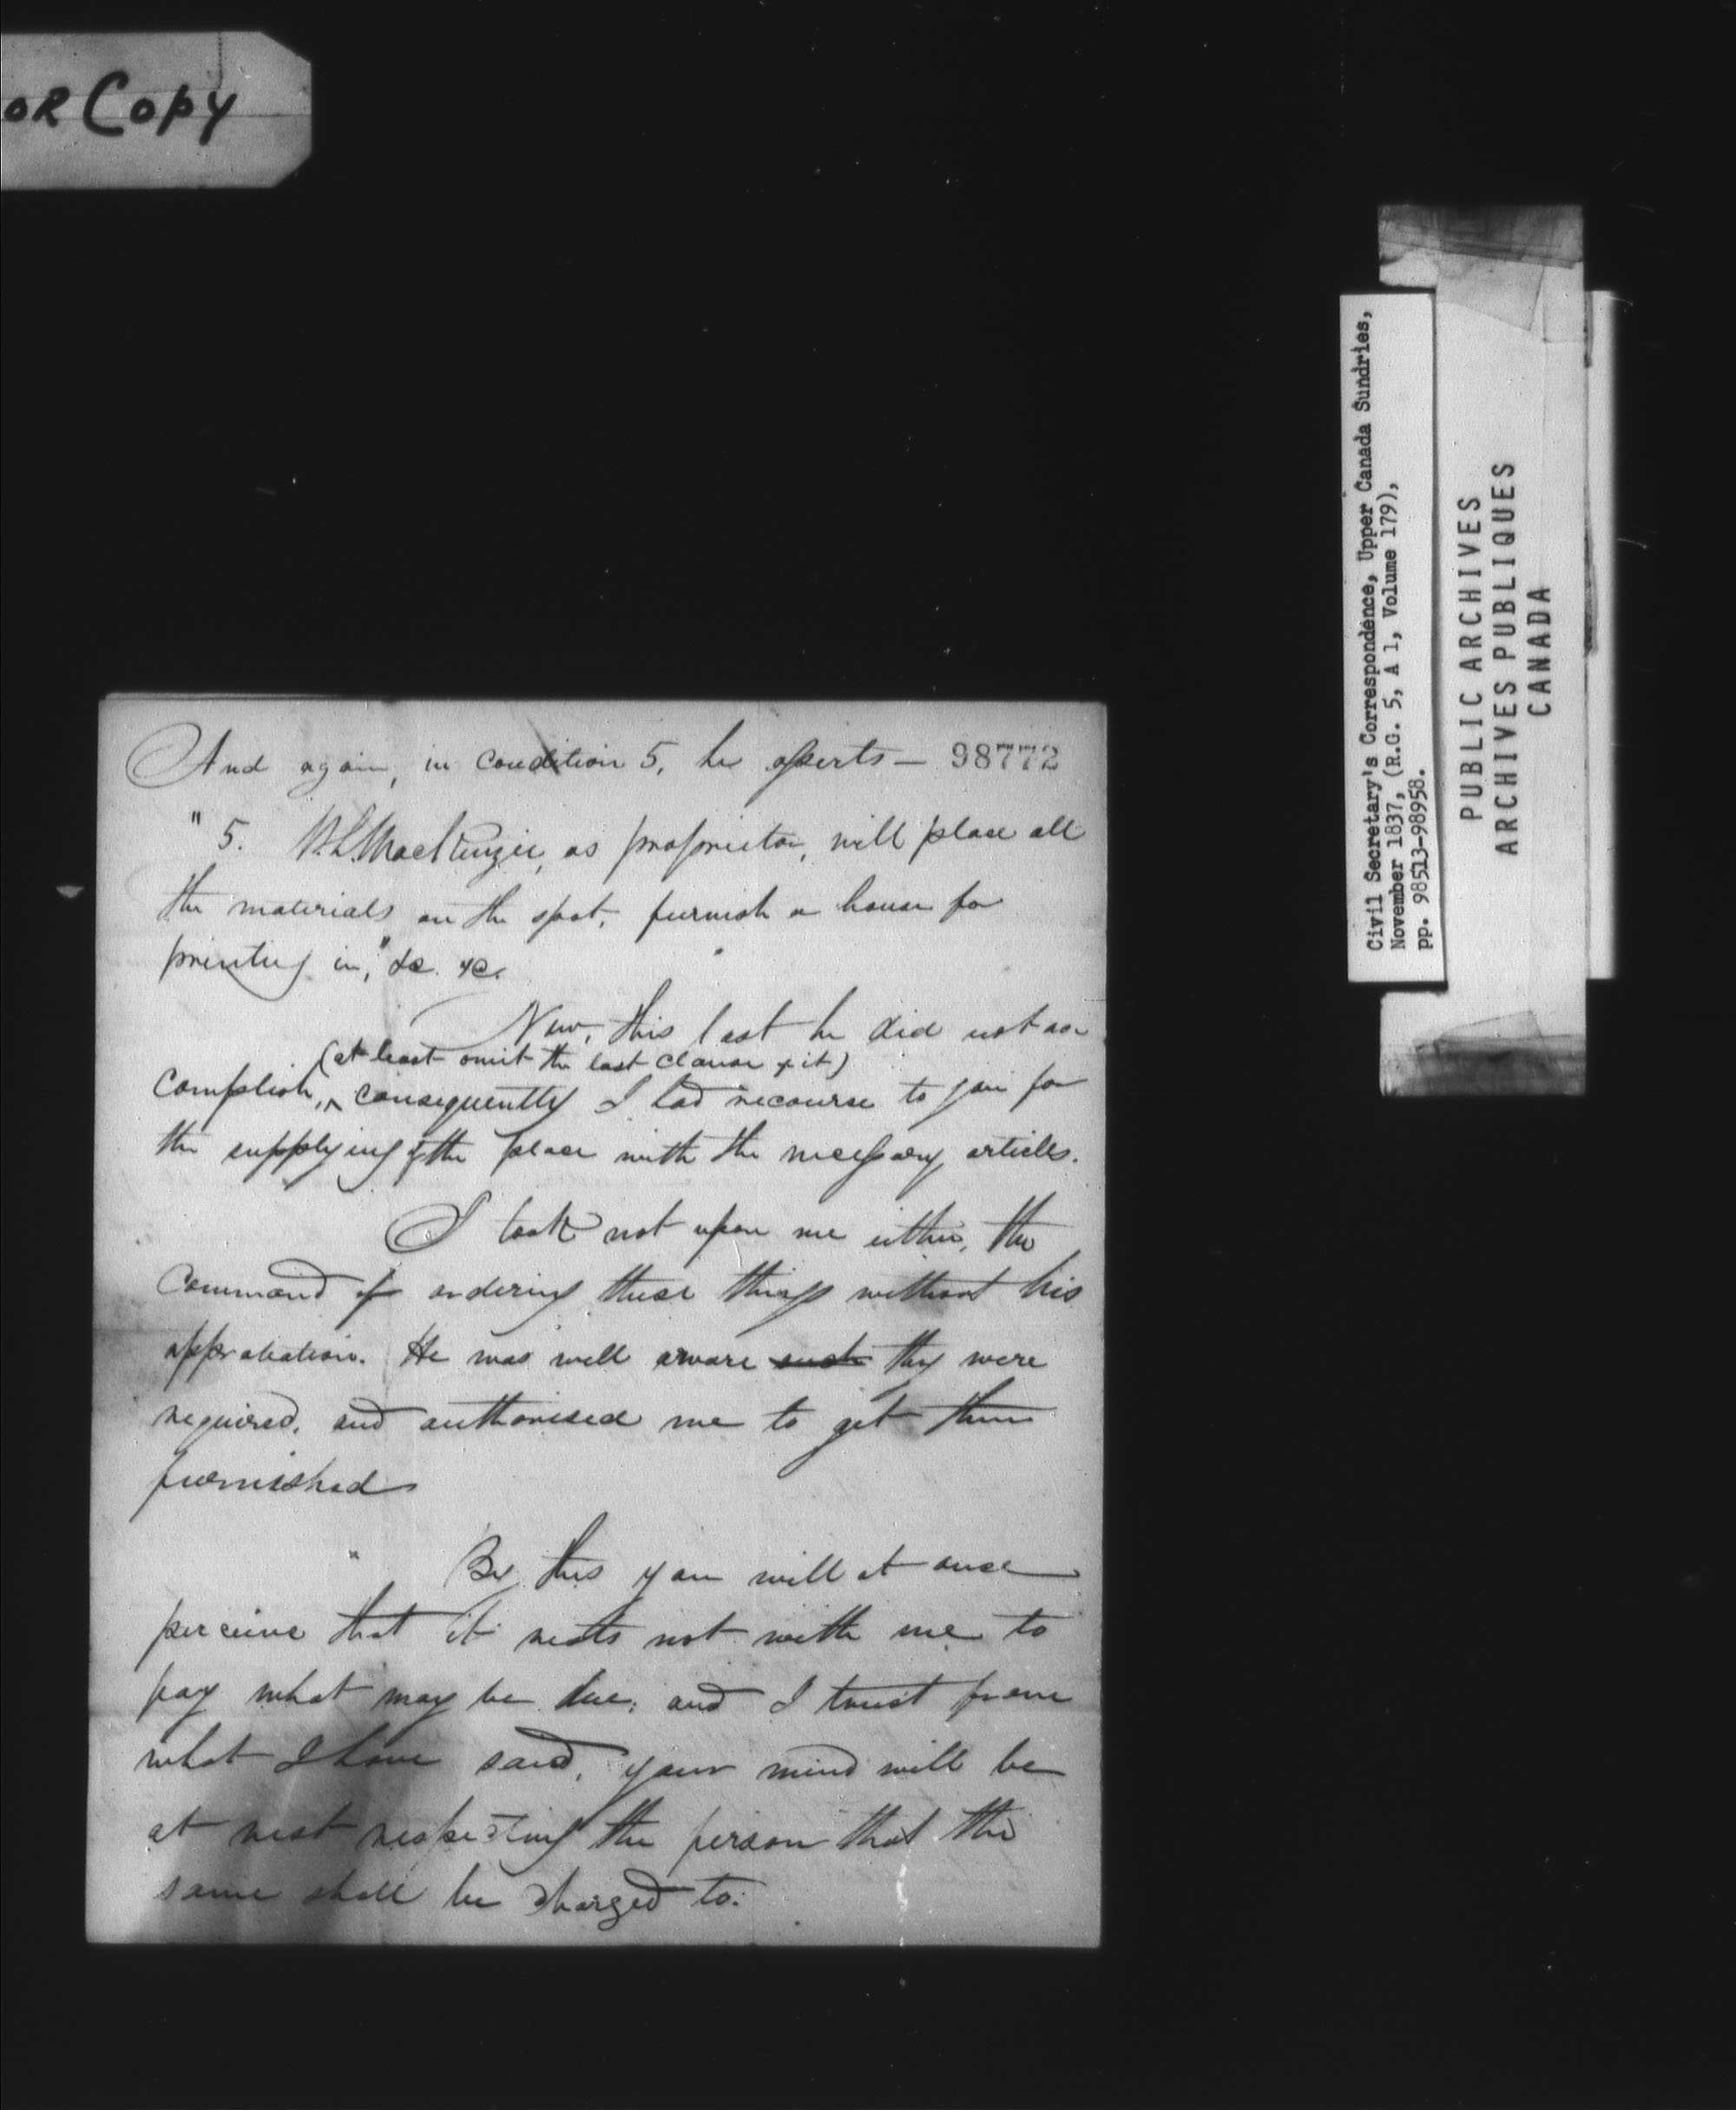 OR Copy
And again, in condition 5, he asserts — 98772
"5. W. L. MacKenzie, as proprietor, will place all
the materials on the spot, furnish a house for
printing in," &c. &c.
Now, this last he did not ac
(at least omit the last clause of it)
complish, ‸ consequently I had recourse to you for
the supplying of the place with the necessary articles.
I took not upon me either, the
command of ordering these things without his
approbation. He was well aware such they were
required, and authorised me to get them
furnished
By this you will at once
perceive that it rests not with me to
pay what may be due; and I trust from
what I have said, your mind will be
at rest respecting the person that the
same shall be charged to.
Civil Secretary's Correspondence, Upper Canada Sundries,
November 1837, (R.G. 5, A 1, Volume 179),
pp. 98513-98958.
PUBLIC ARCHIVES
ARCHIVES PUBLIQUES
CANADA